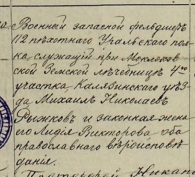 Военный запасной фельдшер
112 пѣхотнаго Уральскаго пол-
ка служащій при
ской Земской лѣчебницѣ 4го
участка Калязинскаго уѣз-
да Михаилъ Николаевъ
Рыжковъ и законная жена
его Лидія Викторова оба
православнаго вѣроисповѣ-
данія.